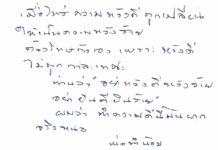 เมื่อไหร่ ความหวังดี ถูกเปลี่ยน
ให้เป็นความหวังร้าย
ต้องโทษตัวเอง เพราะ หวังดี
ไม่ถูก กาละเทศะ
ท่านว่า อย่าหวังดีหวังร้าย
อย่ายินดียินร้าย
ผมว่า ทำความดีนี่มันยาก
จริงหนอ